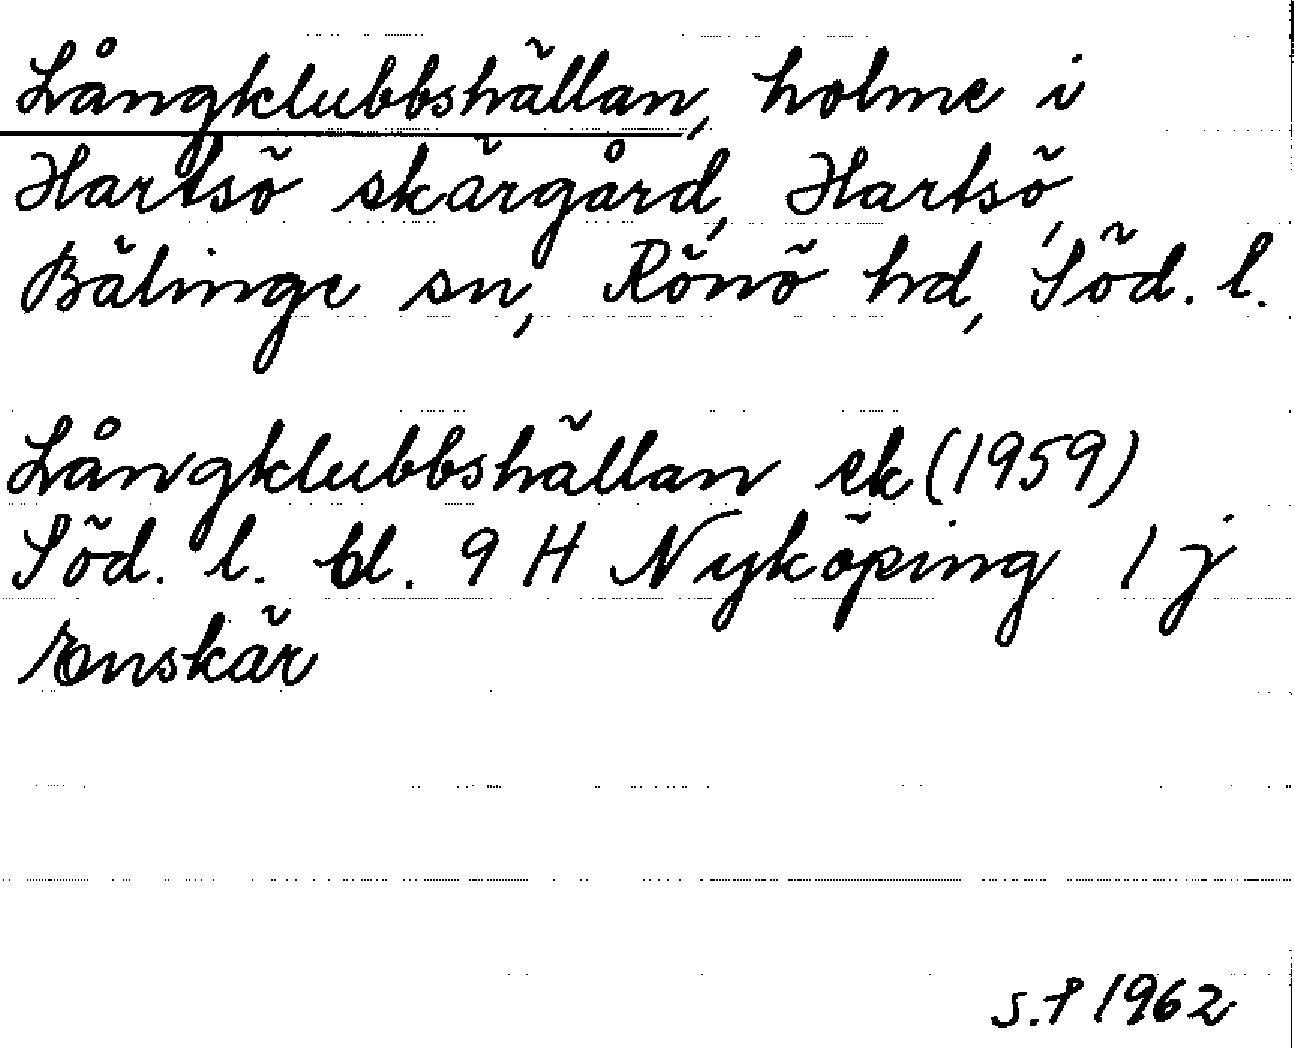 Långklubbshällan, holme i
Hartsö skärgård, Hartsö,
Bälinge sn, Rönö hd, Söd. l.
Långklubbshällan ek (1959)
Söd. l. bl. 9 H Nyköping 1 j
Enskär
S.F 1962